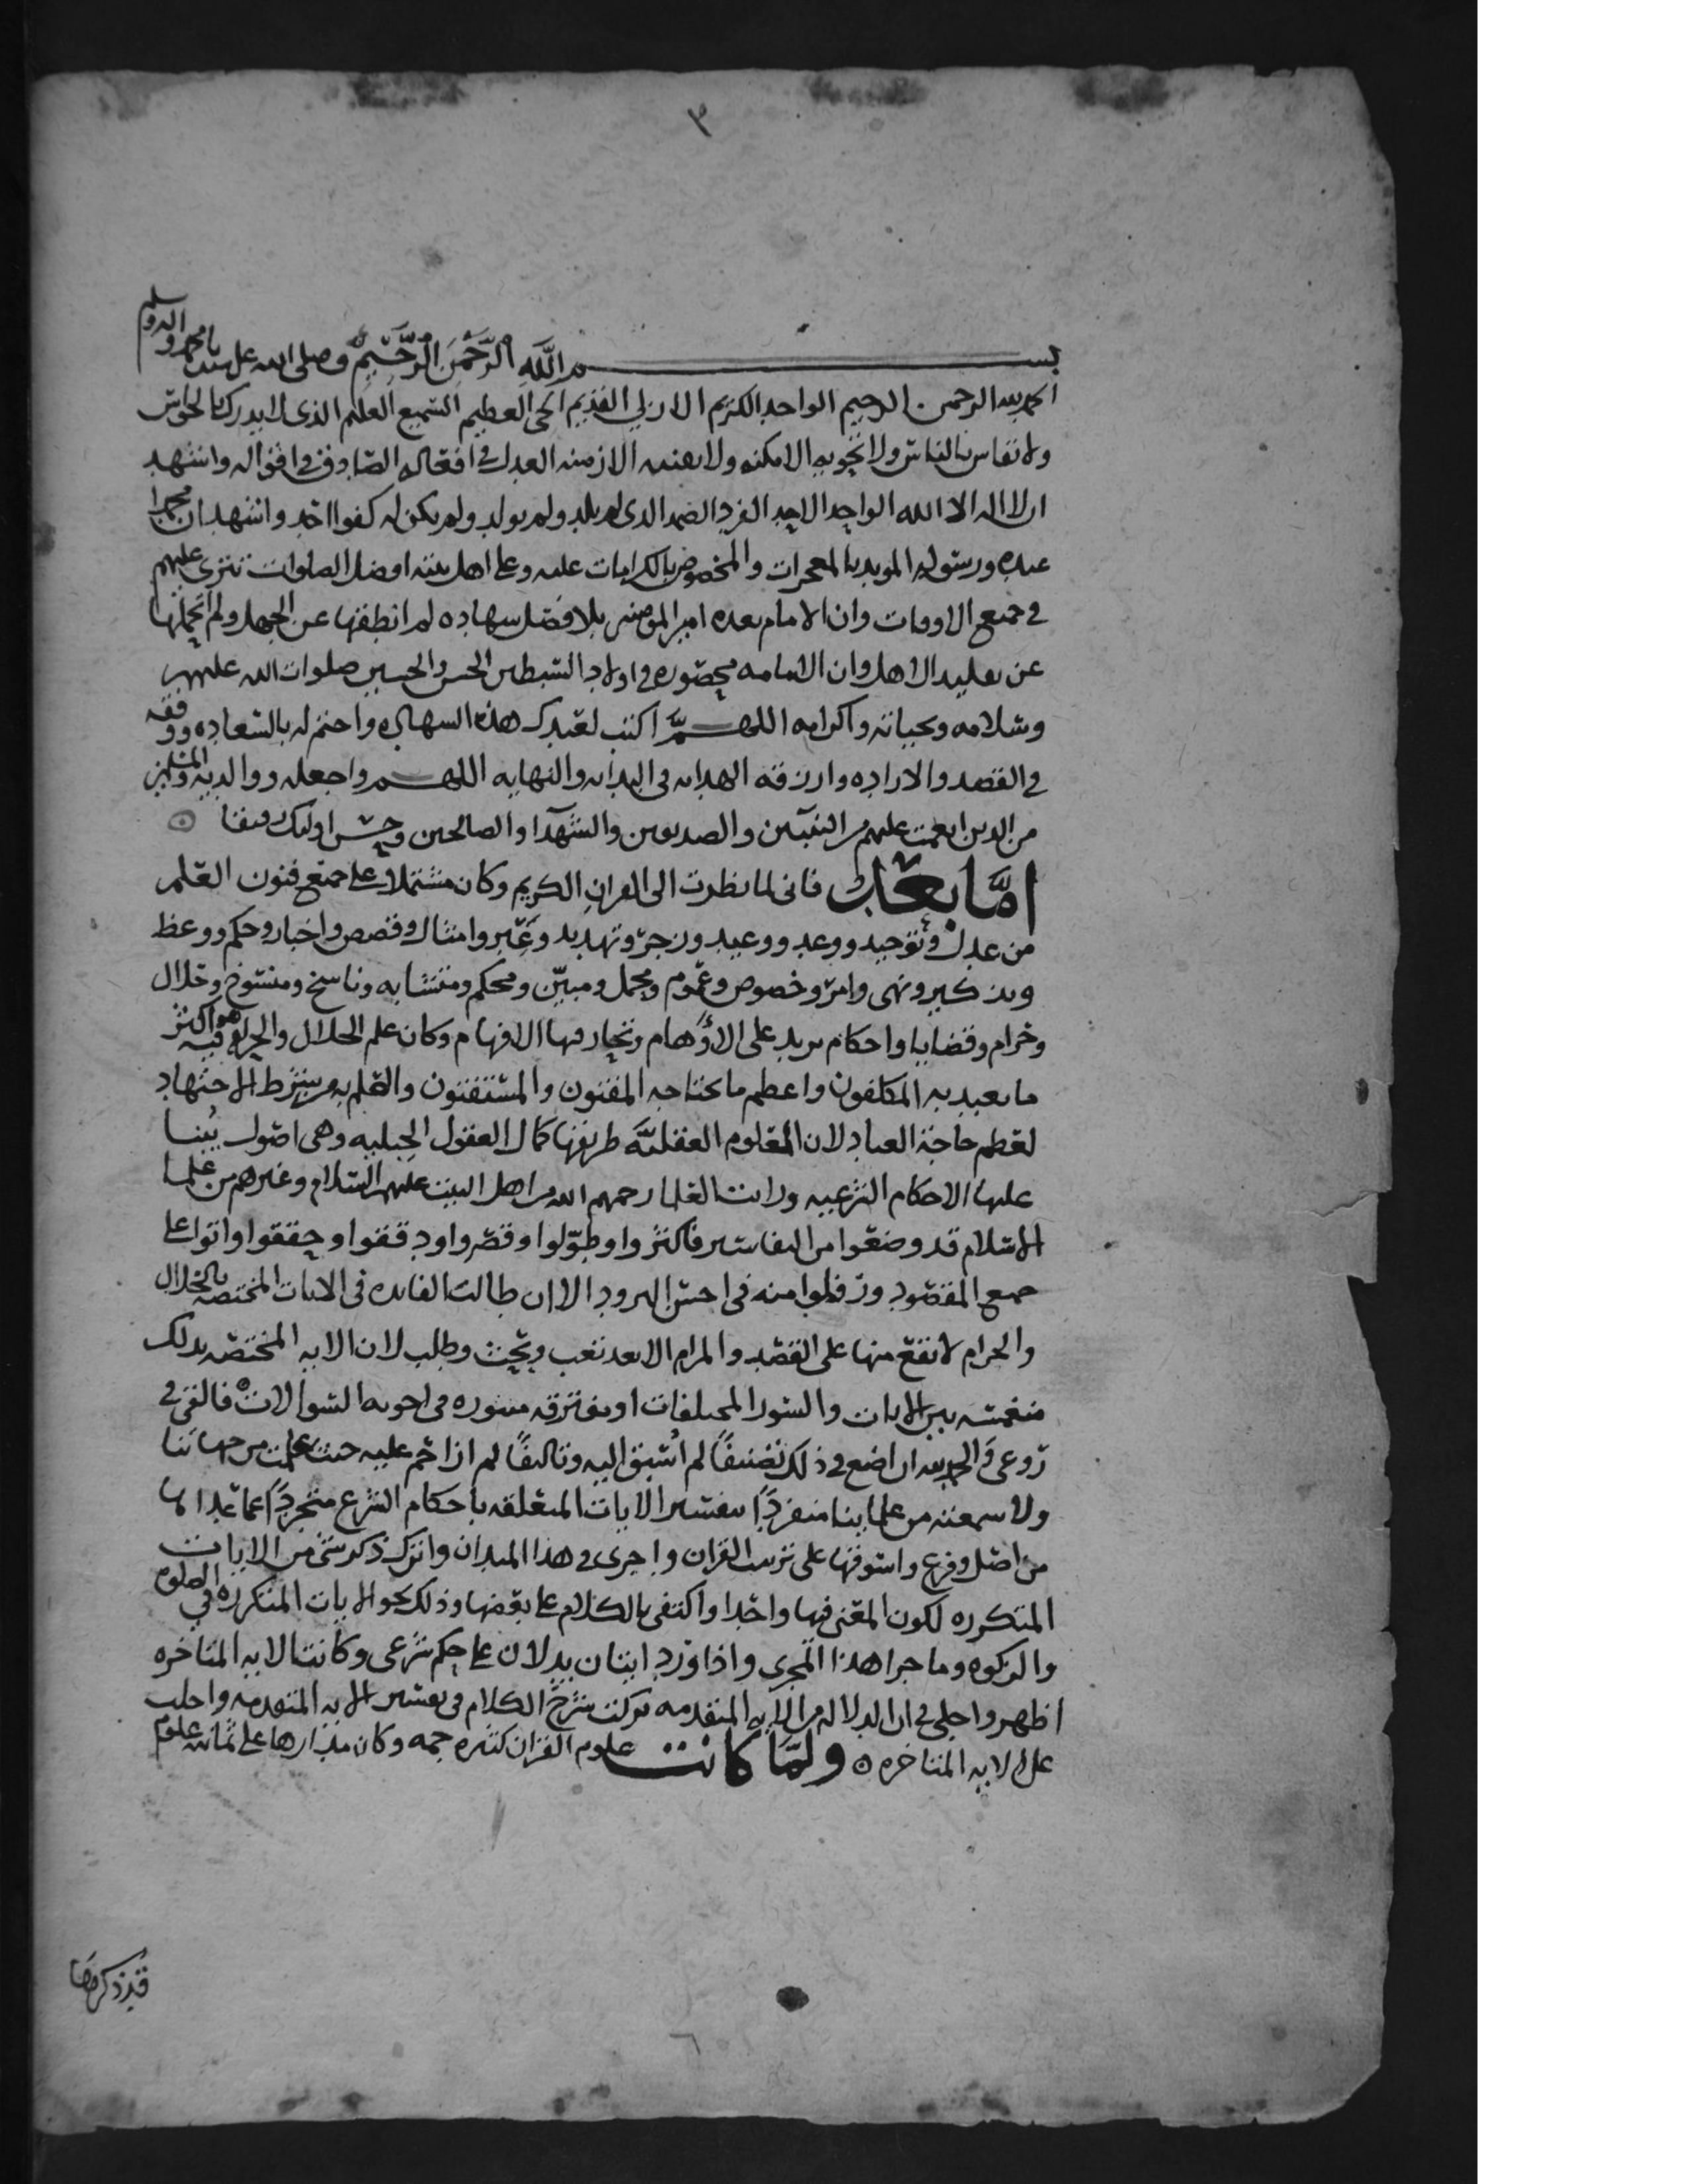 ٣
بسم الله الرحمن الرحيم وصلى الله على سيدنا محمد واله وسلم
الحمد لله الرحمن الرحيم الواحد الكريم الازلي القديم الحي العظيم السميع العليم الذي لا يدرك بالحواس
ولا تقاس بالناس ولا تحويه الامكنه ولا الازمنه العدل في افعاله الصادق في اقواله واشهد
ان لا اله الا الله الواحد الاحد الفرد الصمد الذي لم يلد ولم يولد ولم يكن له كفوا احد واشهد ان محمدا
عبده ورسوله المويد بالمعجزات والمخصوص بالكرامات عليه وعلى اهل بيته افضل الصلوات تترى عليهم
في جميع الاوقات وان الامام بعده امير المومنين بلا فصل شهاده لم انطقها عن الجهل ولم اتحملها
عن تقليد الاهل وان الامامه محصوره في اولاد السبطين الحسن والحسين صلوات الله عليهم
وسلامه وتحياته واكرامه اللهم اكتب لعبدك هذه الشهاده واختم له بالسعاده ووفقه
في القصد والاراده وارزقه الهدايه في البدايه والنهايه اللهم واجعله ووالديه والمسلمين
من الذين انعمت عليهم من النبيين والصديقين والشهدا والصالحين وحسن اولئك رفيقا
امّا بعد فاني لما نظرت الى القران الكريم وكان مشتملا على جميع فنون العلم
من عدل وتوحيد ووعد ووعيد وزجر وتهديد وعبر وامثال وقصص واخبار وحكم ووعظ
وتذكير ونهى وامر وخصوص وعموم ومجمل ومبيّن ومحكم ومتشابه وناسخ ومنسوخ وحلال
وحرام وقضايا واحكام يزيد على الاوهام وتحار فيها الافهام وكان علم الحلال والحرام فيه هو اكثر
ما تعبد به المكلفون واعظم ما يحتاجه المفتون والمستفتون والعلم به من شرط الاجتهاد
لعظم حاجة العباد لان العلوم العقليّه طريقها كمال العقول الجبليه وهي اصول يُبنا
عليها الاحكام الشرعيه ورايت العلما رحمهم الله من اهل البيت عليهم السلام وغيرهم من علما
الاسلام قد وضعوا من التفاسير فاكثروا وطوّلوا وقصروا ودققوا وحققوا واتوا على
جميع المقصود ورفلوا منه في احسن البرود الا ان طالب الفايده في الايات المختصه بالحلال
والحرام لا تقع منها على القصد والمرام الا بعد تعب وبحث وطلب لان الايه المختصه بذلك
منغمسه بين الايات والسور المختلفات او متفرقه منثوره في اجوبه السوالات فالقي في
روعي والحمد لله ان اضع في ذلك تصنيفًا لم اُسبق اليه وتاليفًا لم ازاحم عليه حيث علمت من جهاتنا
ولا سمعته من علماينا منفردًا بتفسير الايات المتعلقه باحكام الشرع متجردًا عما عداها
من اصل وفرع واستوفيها على ترتيب القران واجري في هذا الميدان واترك ذكر شي من الايات
المتكرره لكون المعنى فيها واحدا واكتفى بالكلام على بعضها وذلك نحو الايات المتكرره في الصلوه
والزكوه وما جرا هذا المجرى واذا ورد ايتان يدلان على حكم شرعي وكانت الايه المتاخره
اظهر واجلى في الدلاله من الايه المتقدمه تركت شرح الكلام في تفسير الايه المتقدمه واحلت
على الايه المتاخره ولمّا كانت علوم القران كثيره جمه وكان مدارها على ثمانيه علوم
قد ذكرها
٦